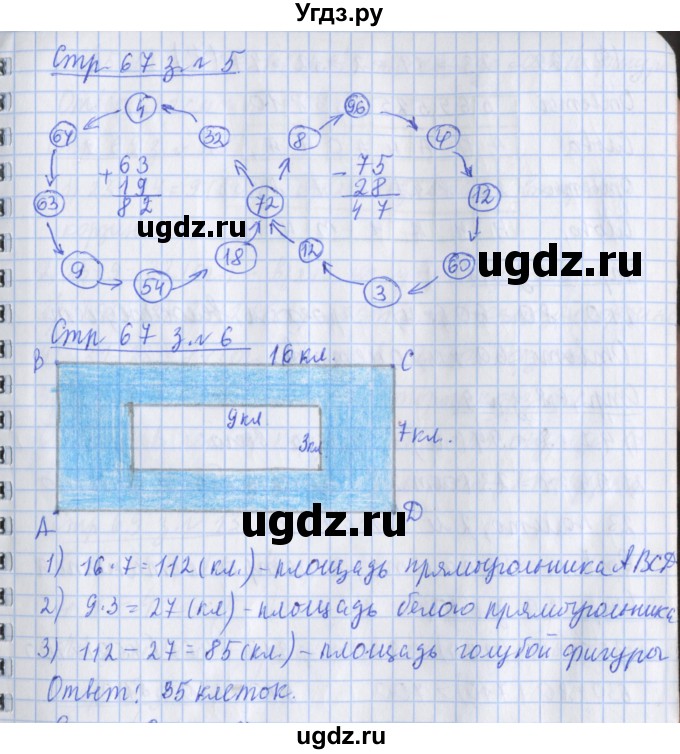 Угдз.ру
Стр 67 з. № 5
4
96
64
32
8
4
63
+ 19
82
- 75
28
47
63
72
12
9
54
18
12
3
60
ugdz.ru
ugdz.ru
Стр 67 з. № 6
B
16 кл.
C
9 кл
3 кл
7 кл.
A
D
ugdz.ru
1) 16 · 7 = 112 (кл.) – площадь прямоугольника ABCD
2) 9 · 3 = 27 (кл) – площадь белого прямоугольника
3) 112 – 27 = 85 (кл.) – площадь голубой фигуры
Ответ: 85 клеток.
ugdz.ru